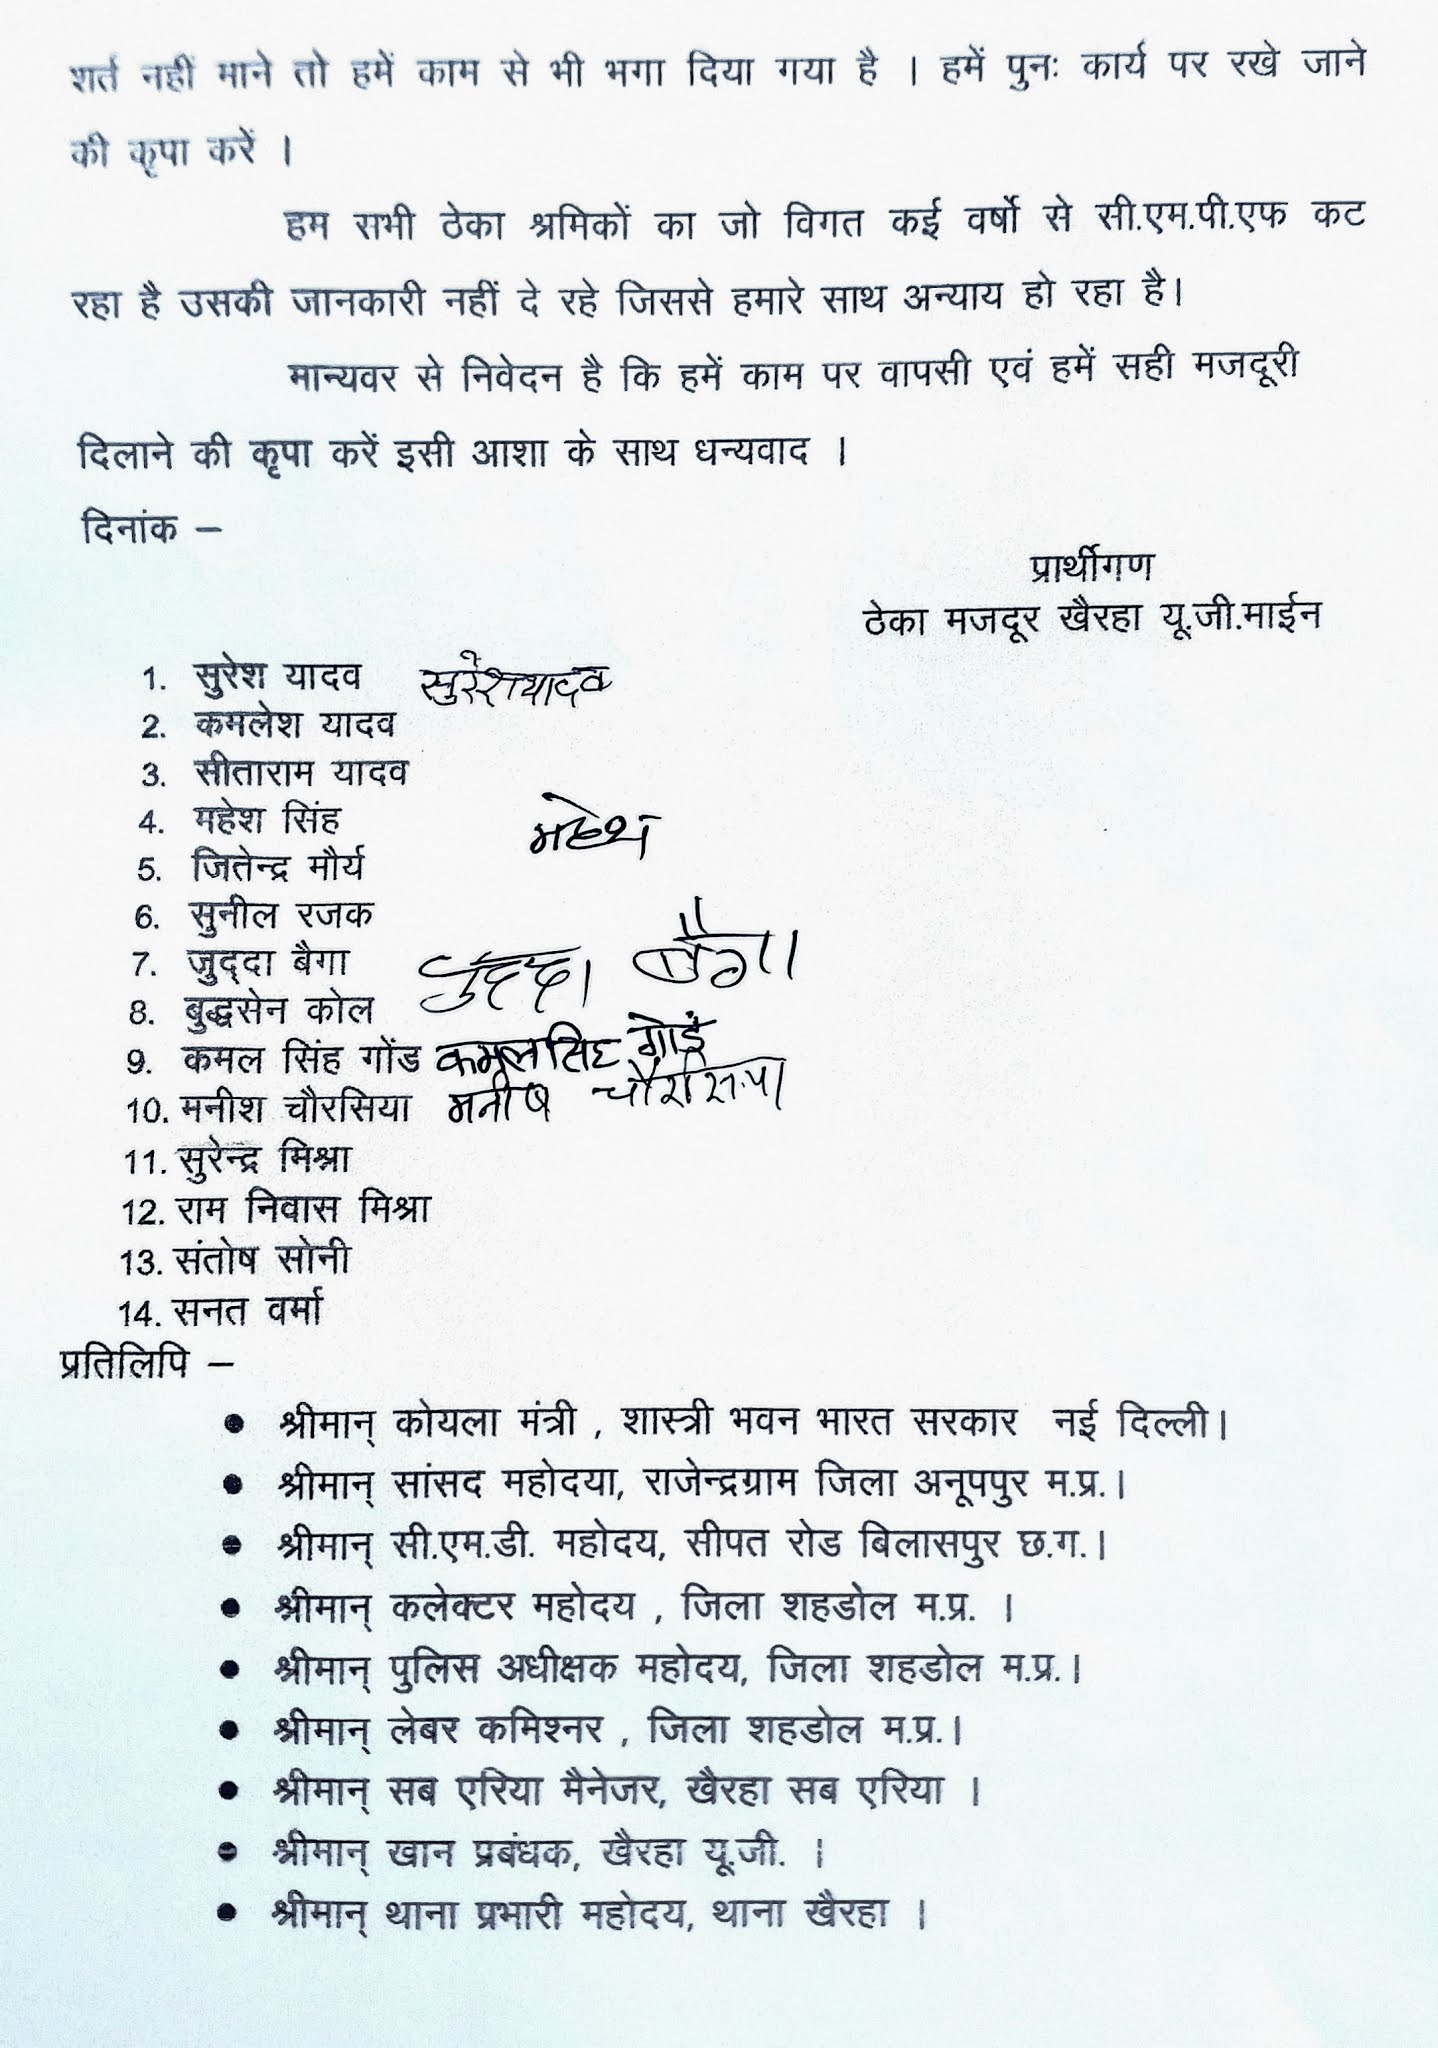 शर्त नहीं माने तो हमें काम से भी भगा दिया गया है । हमें पुनः कार्य पर रखे जाने
की कृपा करें ।
हम सभी ठेका श्रमिकों का जो विगत कई वर्षो से सी.एम.पी.एफ कट
रहा है उसकी जानकारी नहीं दे रहे जिससे हमारे साथ अन्याय हो रहा है।
मान्यवर से निवेदन है कि हमें काम पर वापसी एवं हमें सही मजदूरी
दिलाने की कृपा करें इसी आशा के साथ धन्यवाद ।
दिनांक –
प्रार्थीगण
ठेका मजदूर खैरहा यू.जी.माईन
1. सुरेश यादव सुरेश यादव
2. कमलेश यादव
3. सीताराम यादव
4. महेश सिंह महेश
5. जितेन्द्र मौर्य
6. सुनील रजक
7. जुद्दा बैगा जुद्दा बैगा
8. बुद्धसेन कोल
9. कमल सिंह गोंड कमल सिंह गोंड
10. मनीश चौरसिया मनीष चौरसिया
11. सुरेन्द्र मिश्रा
12. राम निवास मिश्रा
13. संतोष सोनी
14. सनत वर्मा
प्रतिलिपि –
• श्रीमान् कोयला मंत्री , शास्त्री भवन भारत सरकार नई दिल्ली।
• श्रीमान् सांसद महोदया, राजेन्द्रग्राम जिला अनूपपुर म.प्र.।
• श्रीमान् सी.एम.डी. महोदय, सीपत रोड बिलासपुर छ.ग.।
• श्रीमान् कलेक्टर महोदय , जिला शहडोल म.प्र. ।
• श्रीमान् पुलिस अधीक्षक महोदय, जिला शहडोल म.प्र.।
• श्रीमान् लेबर कमिश्नर , जिला शहडोल म.प्र.।
• श्रीमान् सब एरिया मैनेजर, खैरहा सब एरिया ।
• श्रीमान् खान प्रबंधक, खैरहा यू.जी. ।
• श्रीमान् थाना प्रभारी महोदय, थाना खैरहा ।